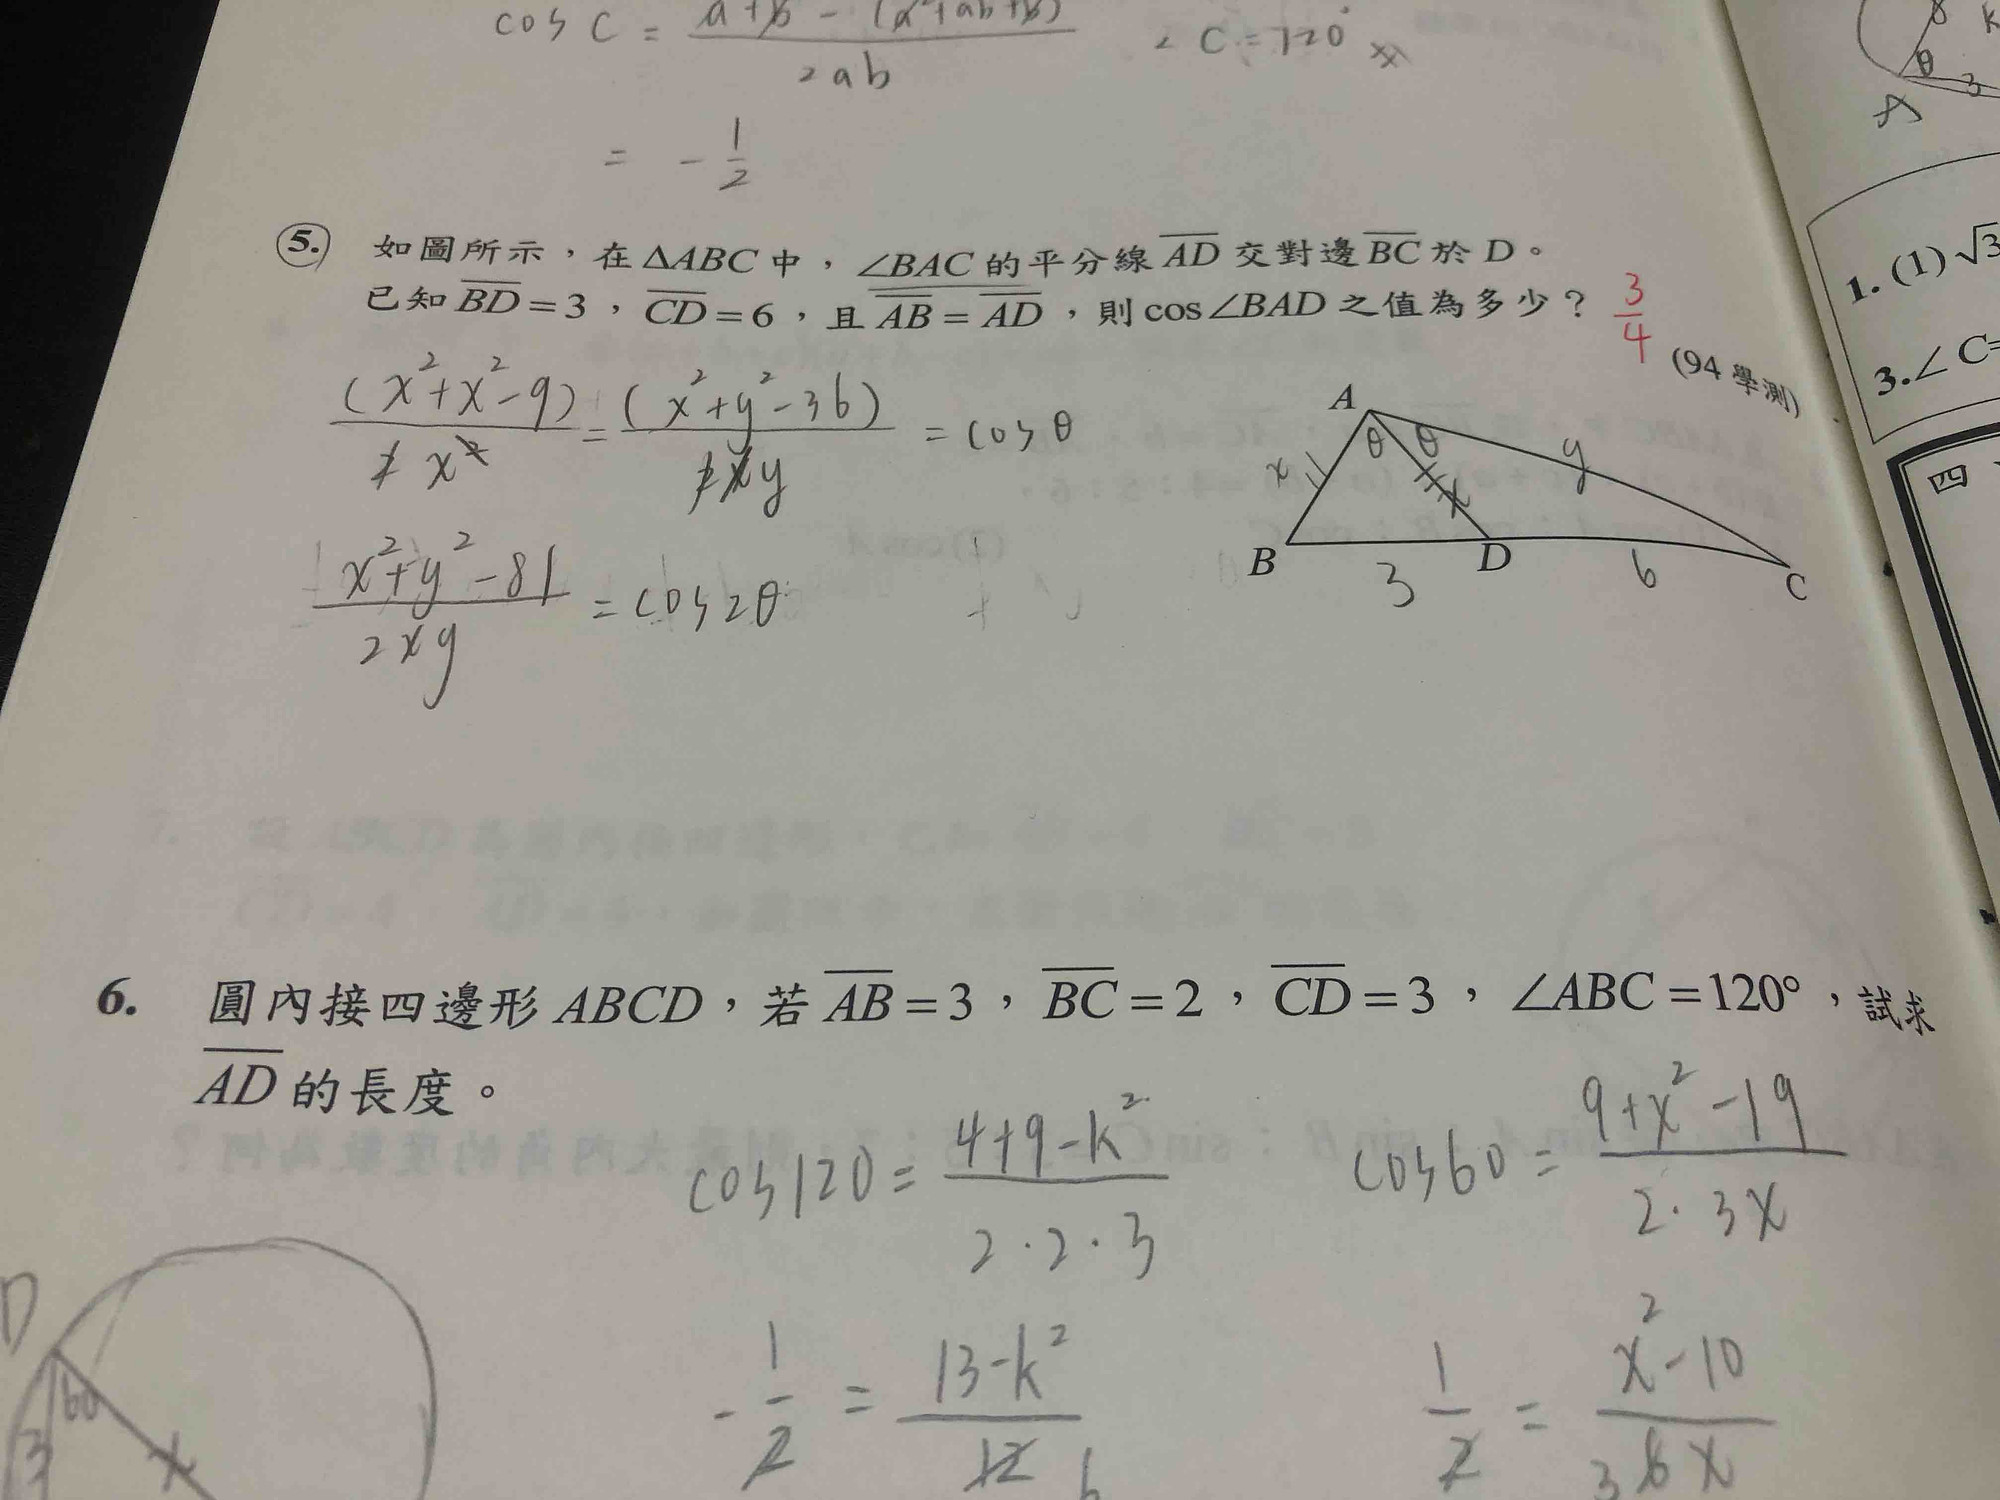 cos C = 2ab ∠C = 120°
= - 1/2
5. 如圖所示，在 ΔABC 中，∠BAC 的平分線 AD 交對邊 BC 於 D。
已知 BD = 3，CD = 6，且 AB = AD，則 cos∠BAD 之值為多少？ 3/4
(94 學測)
(x²+x²-9)/2x² = (x²+y²-36)/2xy = cosθ
(x²+y²-81)/2xy = cos2θ
A
θ θ
x x y
B D C
3 6
6. 圓內接四邊形 ABCD，若 AB = 3，BC = 2，CD = 3，∠ABC = 120°，試求
AD 的長度。
cos120 = (4+9-k²)/2·2·3 cos60 = (9+x²-19)/2·3x
-1/2 = (13-k²)/12 6 1/2 = (x²-10)/6x 3
D
60
3 x
θ
3
A
1. (1) √3
3. ∠C=
四